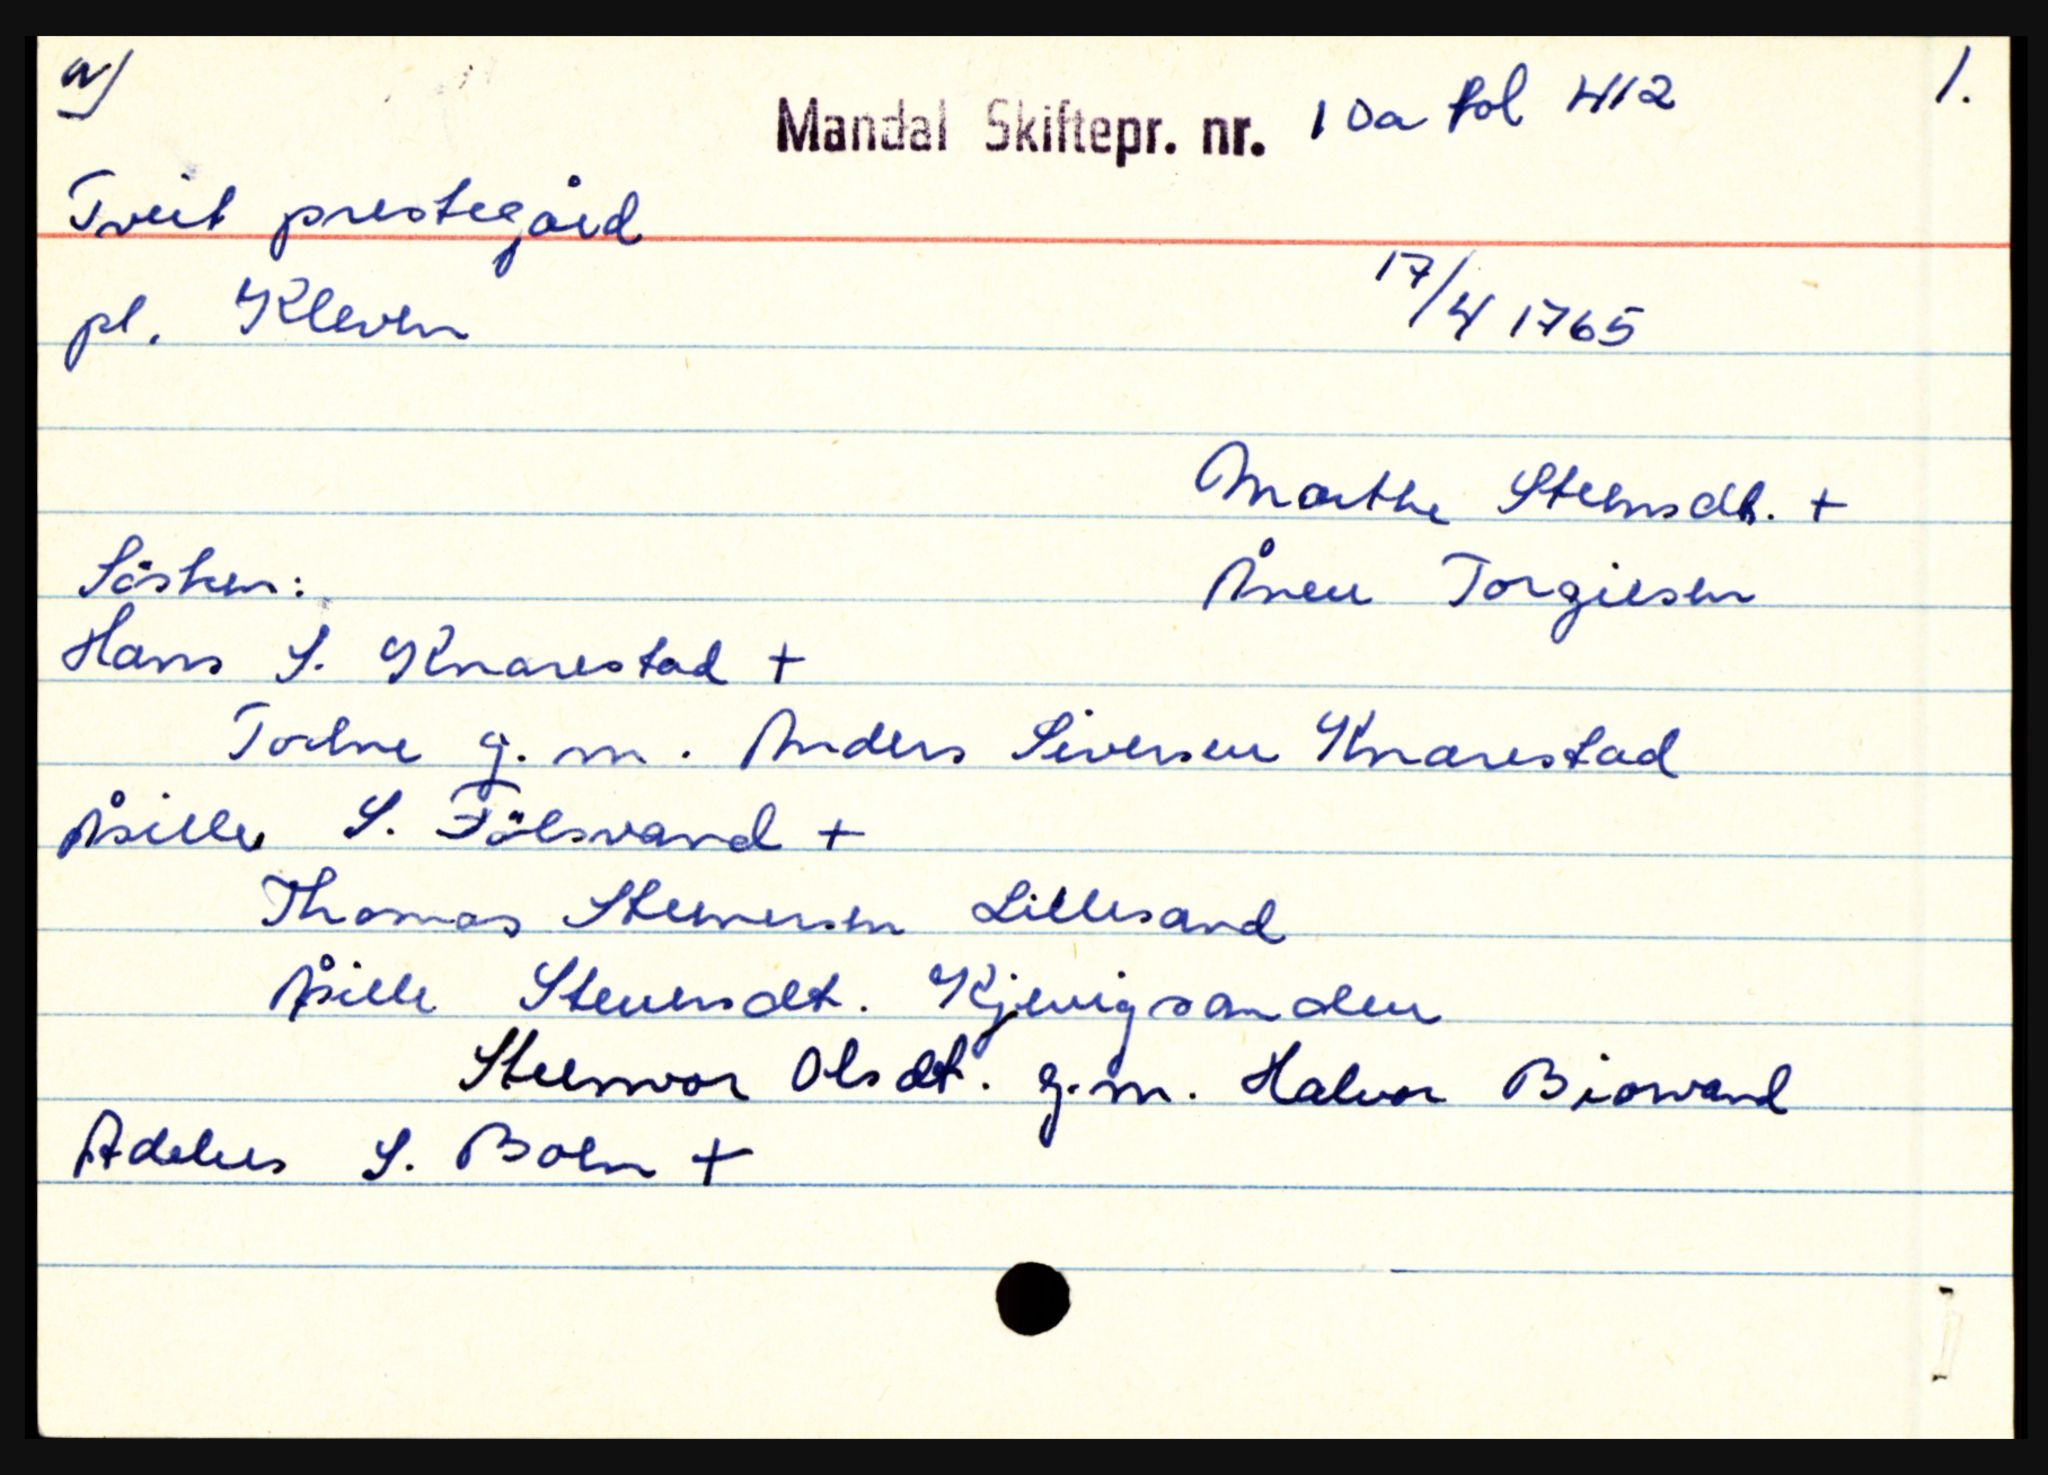 a) 1.
Mandal Skiftepr. nr. 10a fol 412
Tveit prestegård
pl. Kleven 17/4 1765
Marthe Steensdt. +
Søsken: Ånen Torgiesen
Hans S. Knarestad +
Todne g. m. Anders Siversen Knarestad
Åsille S. Fölsvand +
Thomas Steenersen Lillesand
Åsille Steuersdt. Kjevigsanden
Steenvor Olsdt. g.m. Halvor Biorvand
Adelus S. Boen +